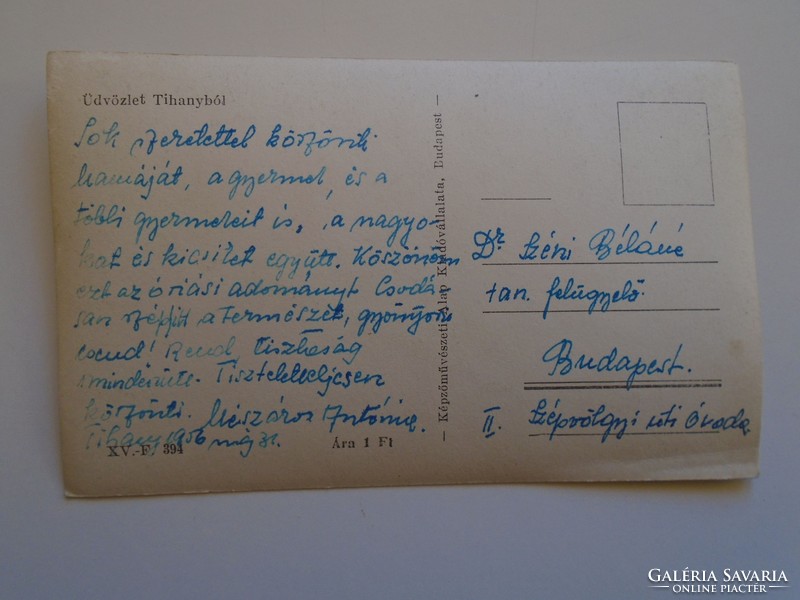 Üdvözlet Tihanyból
Sok szeretettel köszönti
mamáját, a gyermek, és a
többi gyermekeit is, a nagyo-
kat és kicsiket együtt. Köszönöm
ezt az óriási adományt. Csodá-
san szép itt a természet, gyönyörű
csend! Rend, tisztaság
mindenütt. Tiszteletteljesen
köszönti. Mészáros Antónia.
Tihany 1956 máj 31.
XV.-F. 394
Ára 1 Ft
— Képzőművészeti Alap Kiadóvállalata, Budapest —
Dr Széni Béláné
tan. felügyelő.
Budapest.
II. Szépvölgyi úti óvoda
GALÉRIA SAVARIA
ONLINE PIACTÉR